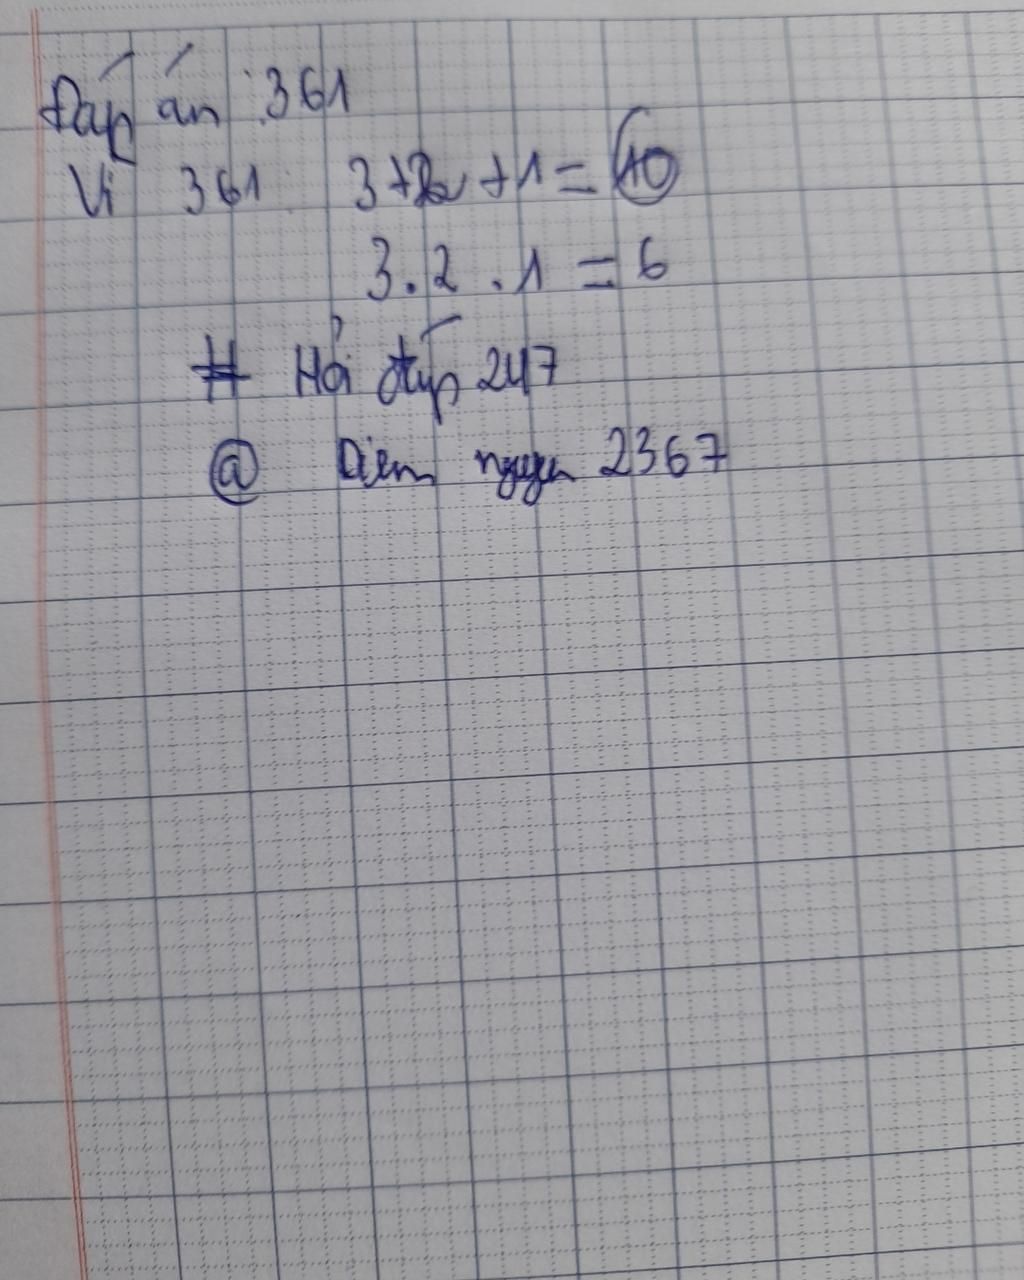 Đáp án : 361
Vì 361 3+2+1= 10
3.2.1 = 6
# Hỏi đáp 247
@ Diem nguyen 2367